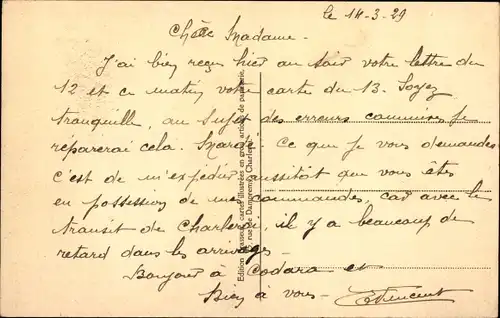 le 14-3-29
Chère Madame -
J'ai bien reçu hier au soir votre lettre du
12 et ce matin votre carte du 13. Soyez
tranquille, au sujet des erreurs commises je
réparerai cela. Ce que je vous demandes
c'est de m'expédier aussitôt que vous êtes
en possession de mes commandes, car avec le
transit de Charleroi, il y a beaucoup de
retard dans les arrivages -
Bonjour à Codara et
Bien à vous -
Edition Brasseur, cartes illustrées en gros, articles de papeterie,
rue de Dampremy, Charleroi